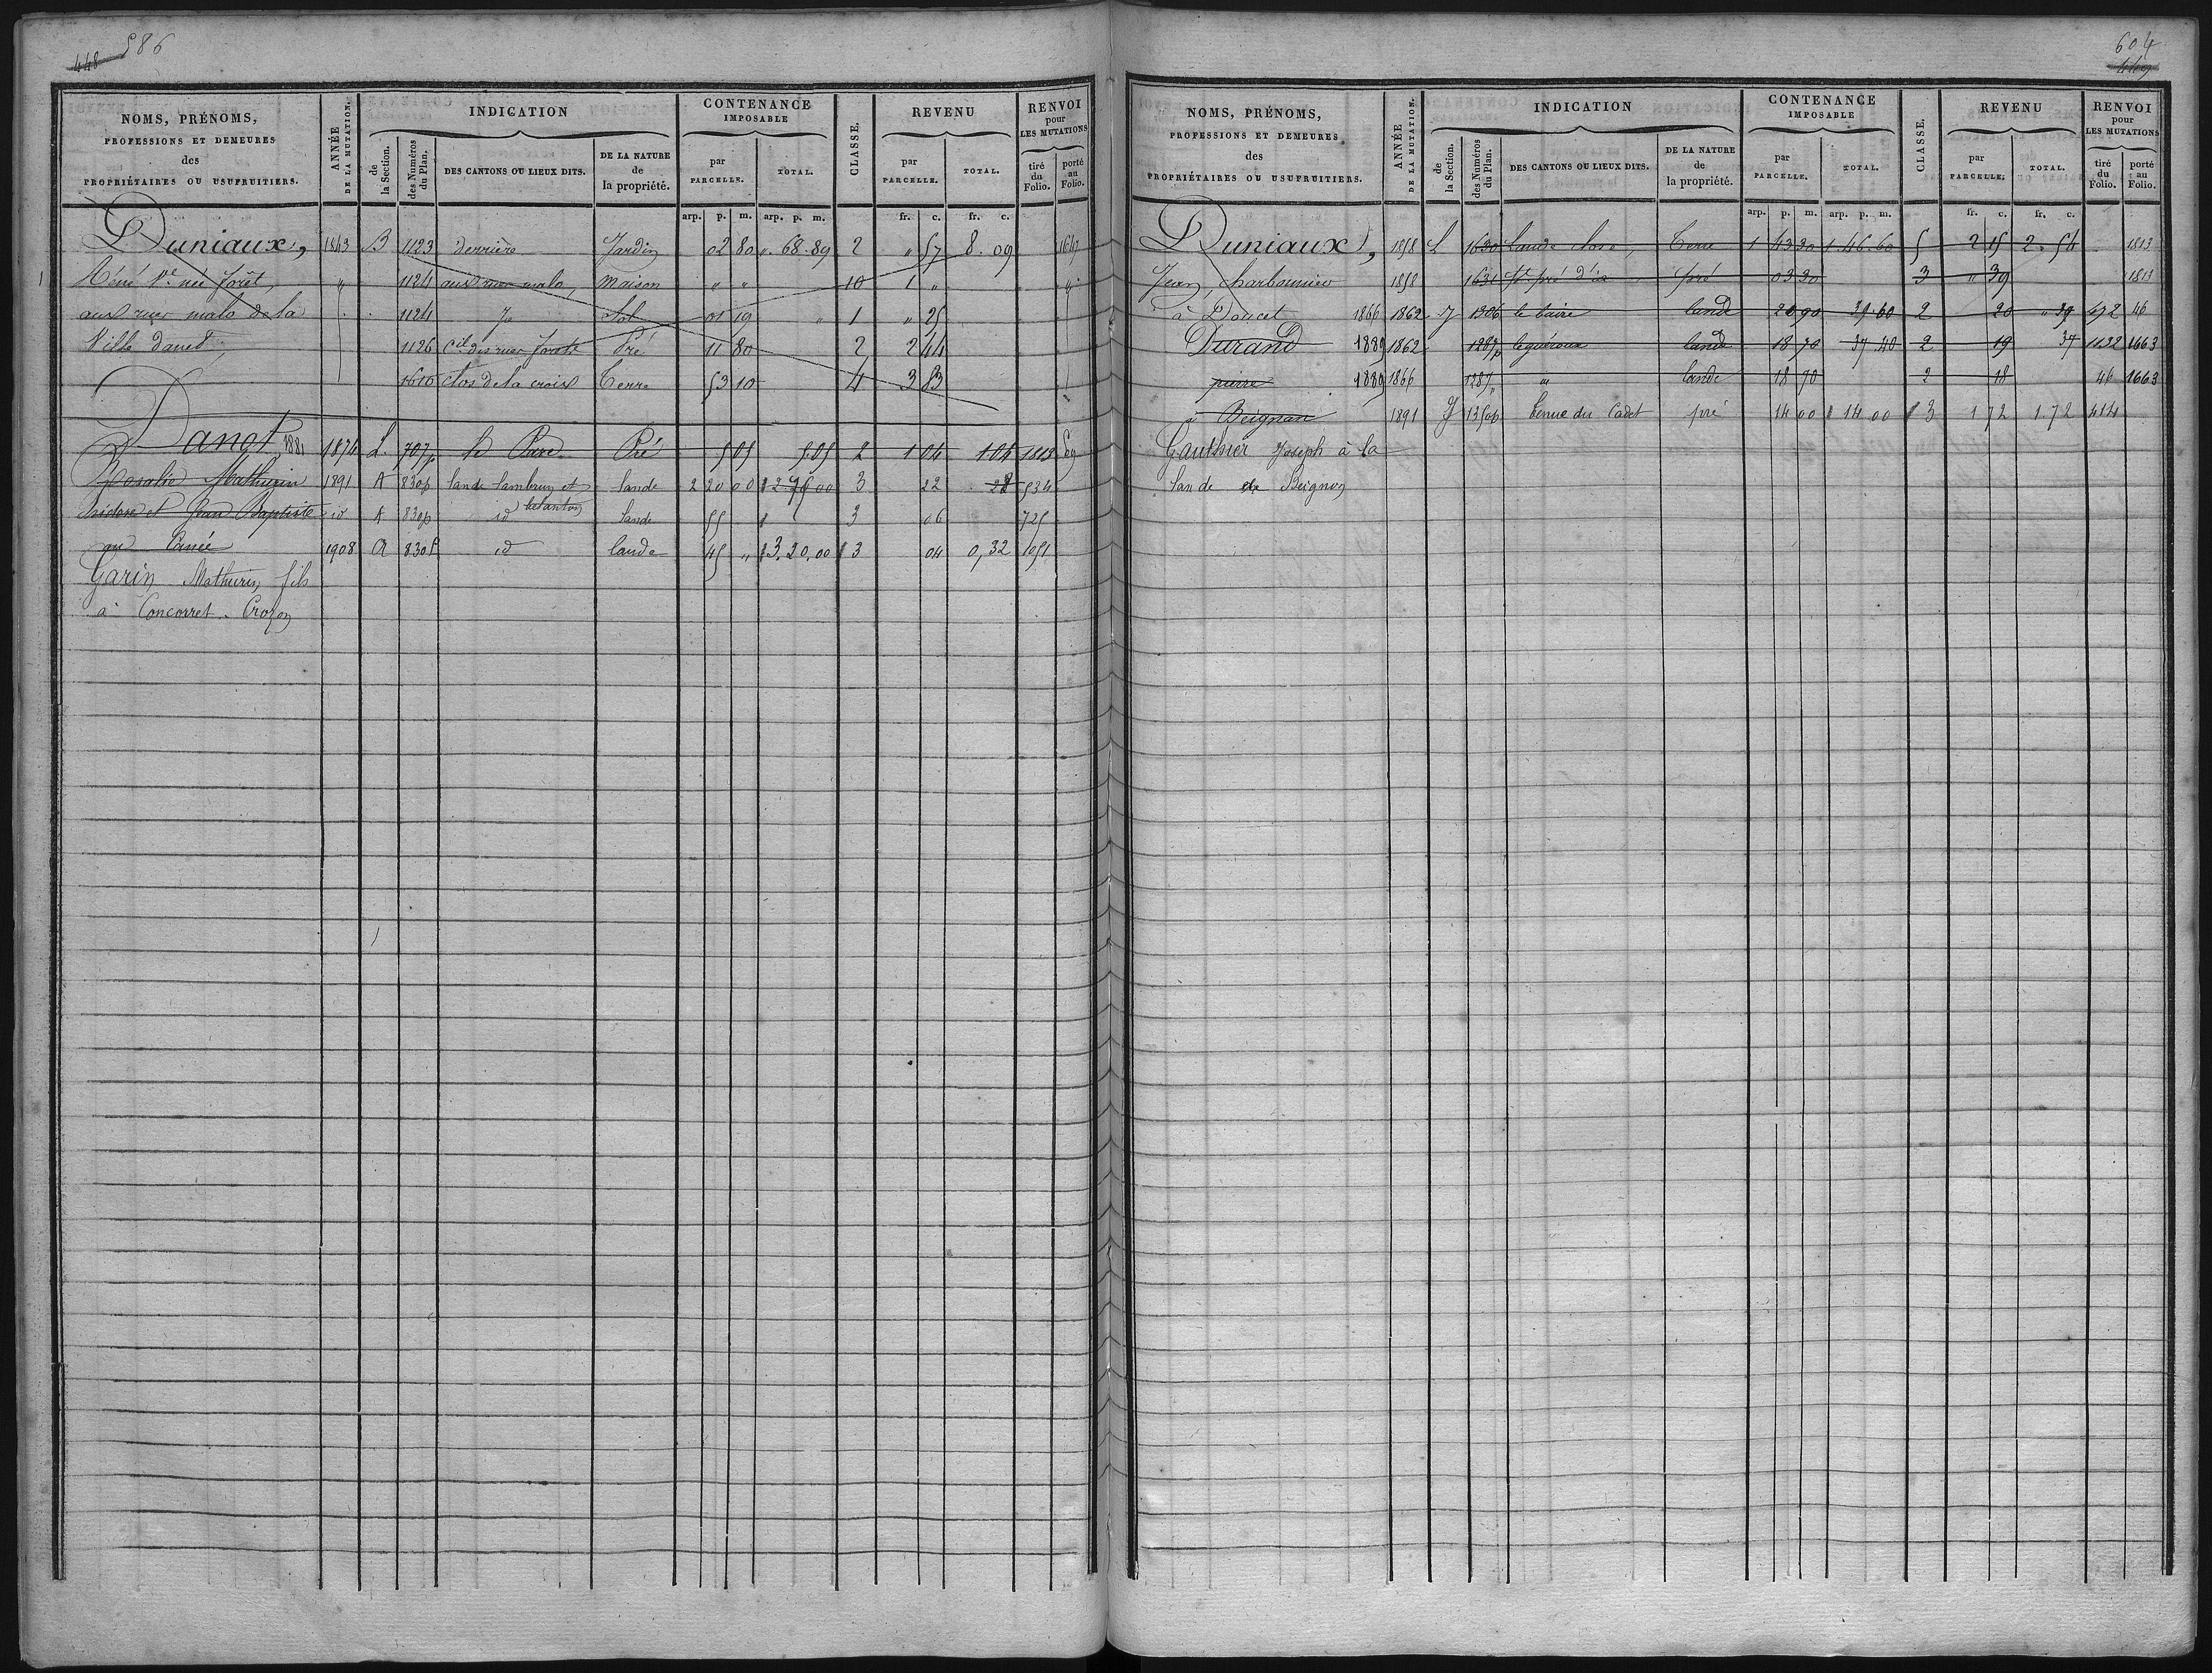 448 586
NOMS, PRÉNOMS, PROFESSIONS ET DEMEURES des PROPRIÉTAIRES OU USUFRUITIERS.
ANNÉE DE LA MUTATION.
INDICATION
de la Section.
des Numéros du Plan.
DES CANTONS OU LIEUX DITS.
DE LA NATURE de la propriété.
CONTENANCE IMPOSABLE
par PARCELLE.
TOTAL.
CLASSE.
REVENU
par PARCELLE.
TOTAL.
RENVOI pour LES MUTATIONS
tiré du Folio.
porté au Folio.
arp. p. m. arp. p. m. fr. c. fr. c.
Duniaux, 1843 B 1123 derrière Jardin 02 80 " 68.89 2 " 57 8.09 1647
Réné Ve née forêt, " 1124 aux rues malo, maison " " 10 1 " "
aux rues malo de la 1124 Sol 01 19 1 " 25
Ville danet 1126 des rues Pré 11 80 2 2 44
1610 clos de la croix Terre 53 10 4 3 83
Danet 1881 1874 L 707p Pré 5 05 5.05 2 1 04 1.04 1813
Rosalie Mathurin 1891 A 830p lande lambrun et lande 2 20 00 3 22 22 534
Isidore et Jean Baptiste id A 830p id lande 55 3 06 725
1908 A 830p id lande 45 " 3,20,00 3 04 0,32 1051
Garin Mathurin fils
à Concorret. Crozon
604 449
NOMS, PRÉNOMS, PROFESSIONS ET DEMEURES des PROPRIÉTAIRES OU USUFRUITIERS.
ANNÉE DE LA MUTATION.
INDICATION
de la Section.
des Numéros du Plan.
DES CANTONS OU LIEUX DITS.
DE LA NATURE de la propriété.
CONTENANCE IMPOSABLE
par PARCELLE.
TOTAL.
CLASSE.
REVENU
par PARCELLE.
TOTAL.
RENVOI pour LES MUTATIONS
tiré du Folio.
porté au Folio.
arp. p. m. arp. p. m. fr. c. fr. c.
Duniaux, 1858 L 1630 lande close, Terre 1 43 30 1.46.60 5 2 15 2.54 1813
Jean, charbonnier 1858 1631 pré 03 30 3 " 39 1813
à Doucet 1866 1862 J 1306 lande " 20 90 39.60 2 20 " 39 492 46
Durand 1889 1862 1287p lande 18 70 37.40 2 19 37 1132 1663
pierre 1889 1866 1287 " lande 18 70 2 18 46 1663
à Beignan 1891 J 1350p tenue du Cadet pré 14 00 14 00 3 1 72 1 72 414
Gauthier Joseph à la
lande de Beignon